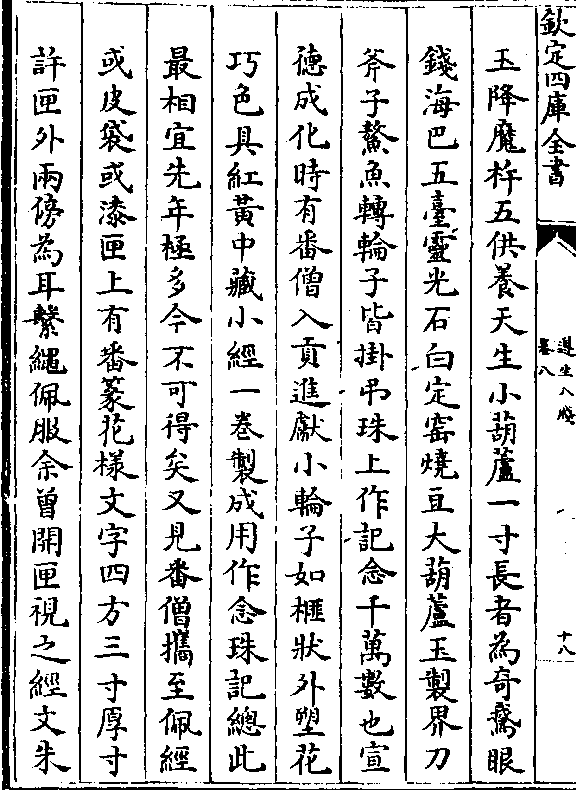 欽定四庫全書
遵生八牋
卷八
十八
玉降魔杵五供養天生小葫蘆一寸長者為奇鵞眼
錢海巴五臺靈光石白定窑燒豆大葫蘆玉製界刀
斧子鰲魚轉輪子皆掛弔珠上作記念千萬數也宣
德成化時有番僧入貢進獻小輪子如榧狀外塑花
巧色具紅黃中藏小經一卷製成用作念珠記總此
最相宜先年極多今不可得矣又見番僧攜至佩經
或皮袋或漆匣上有番篆花樣文字四方三寸厚寸
許匣外兩傍為耳繫繩佩服余曾開匣視之經文朱